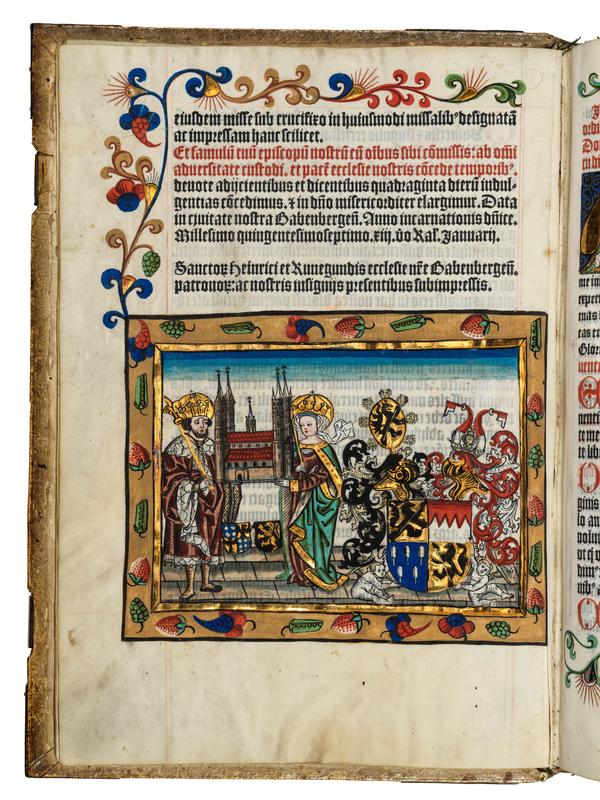 eiusdem misse sub crucifixo in huiusmodi missalibꝰ designatā
ac impressam hanc scilicet.
Et famulū tuū episcopū nostrū cū oībus sibi cōmissis: ab omī
adversitate custodi. et pacē ecclesie nostris cōcede temporibꝰ.
devote adijcientibus et dicentibus quadraginta dierū indul-
gentias cōcedimus. ⁊ in dn̄o misericorditer elargimur. Data
in civitate nostra Babenbergeñ. Anno incarnationis dn̄ice.
Millesimo quingentesimoseptimo. xiij. vo Kaľ. Januarij.
Sanctoꝝ Heinrici et Kunegundis ecclesie nr̄e Babenbergeñ.
patronoꝝ: ac nostris insignijs presentibus subimpressis.